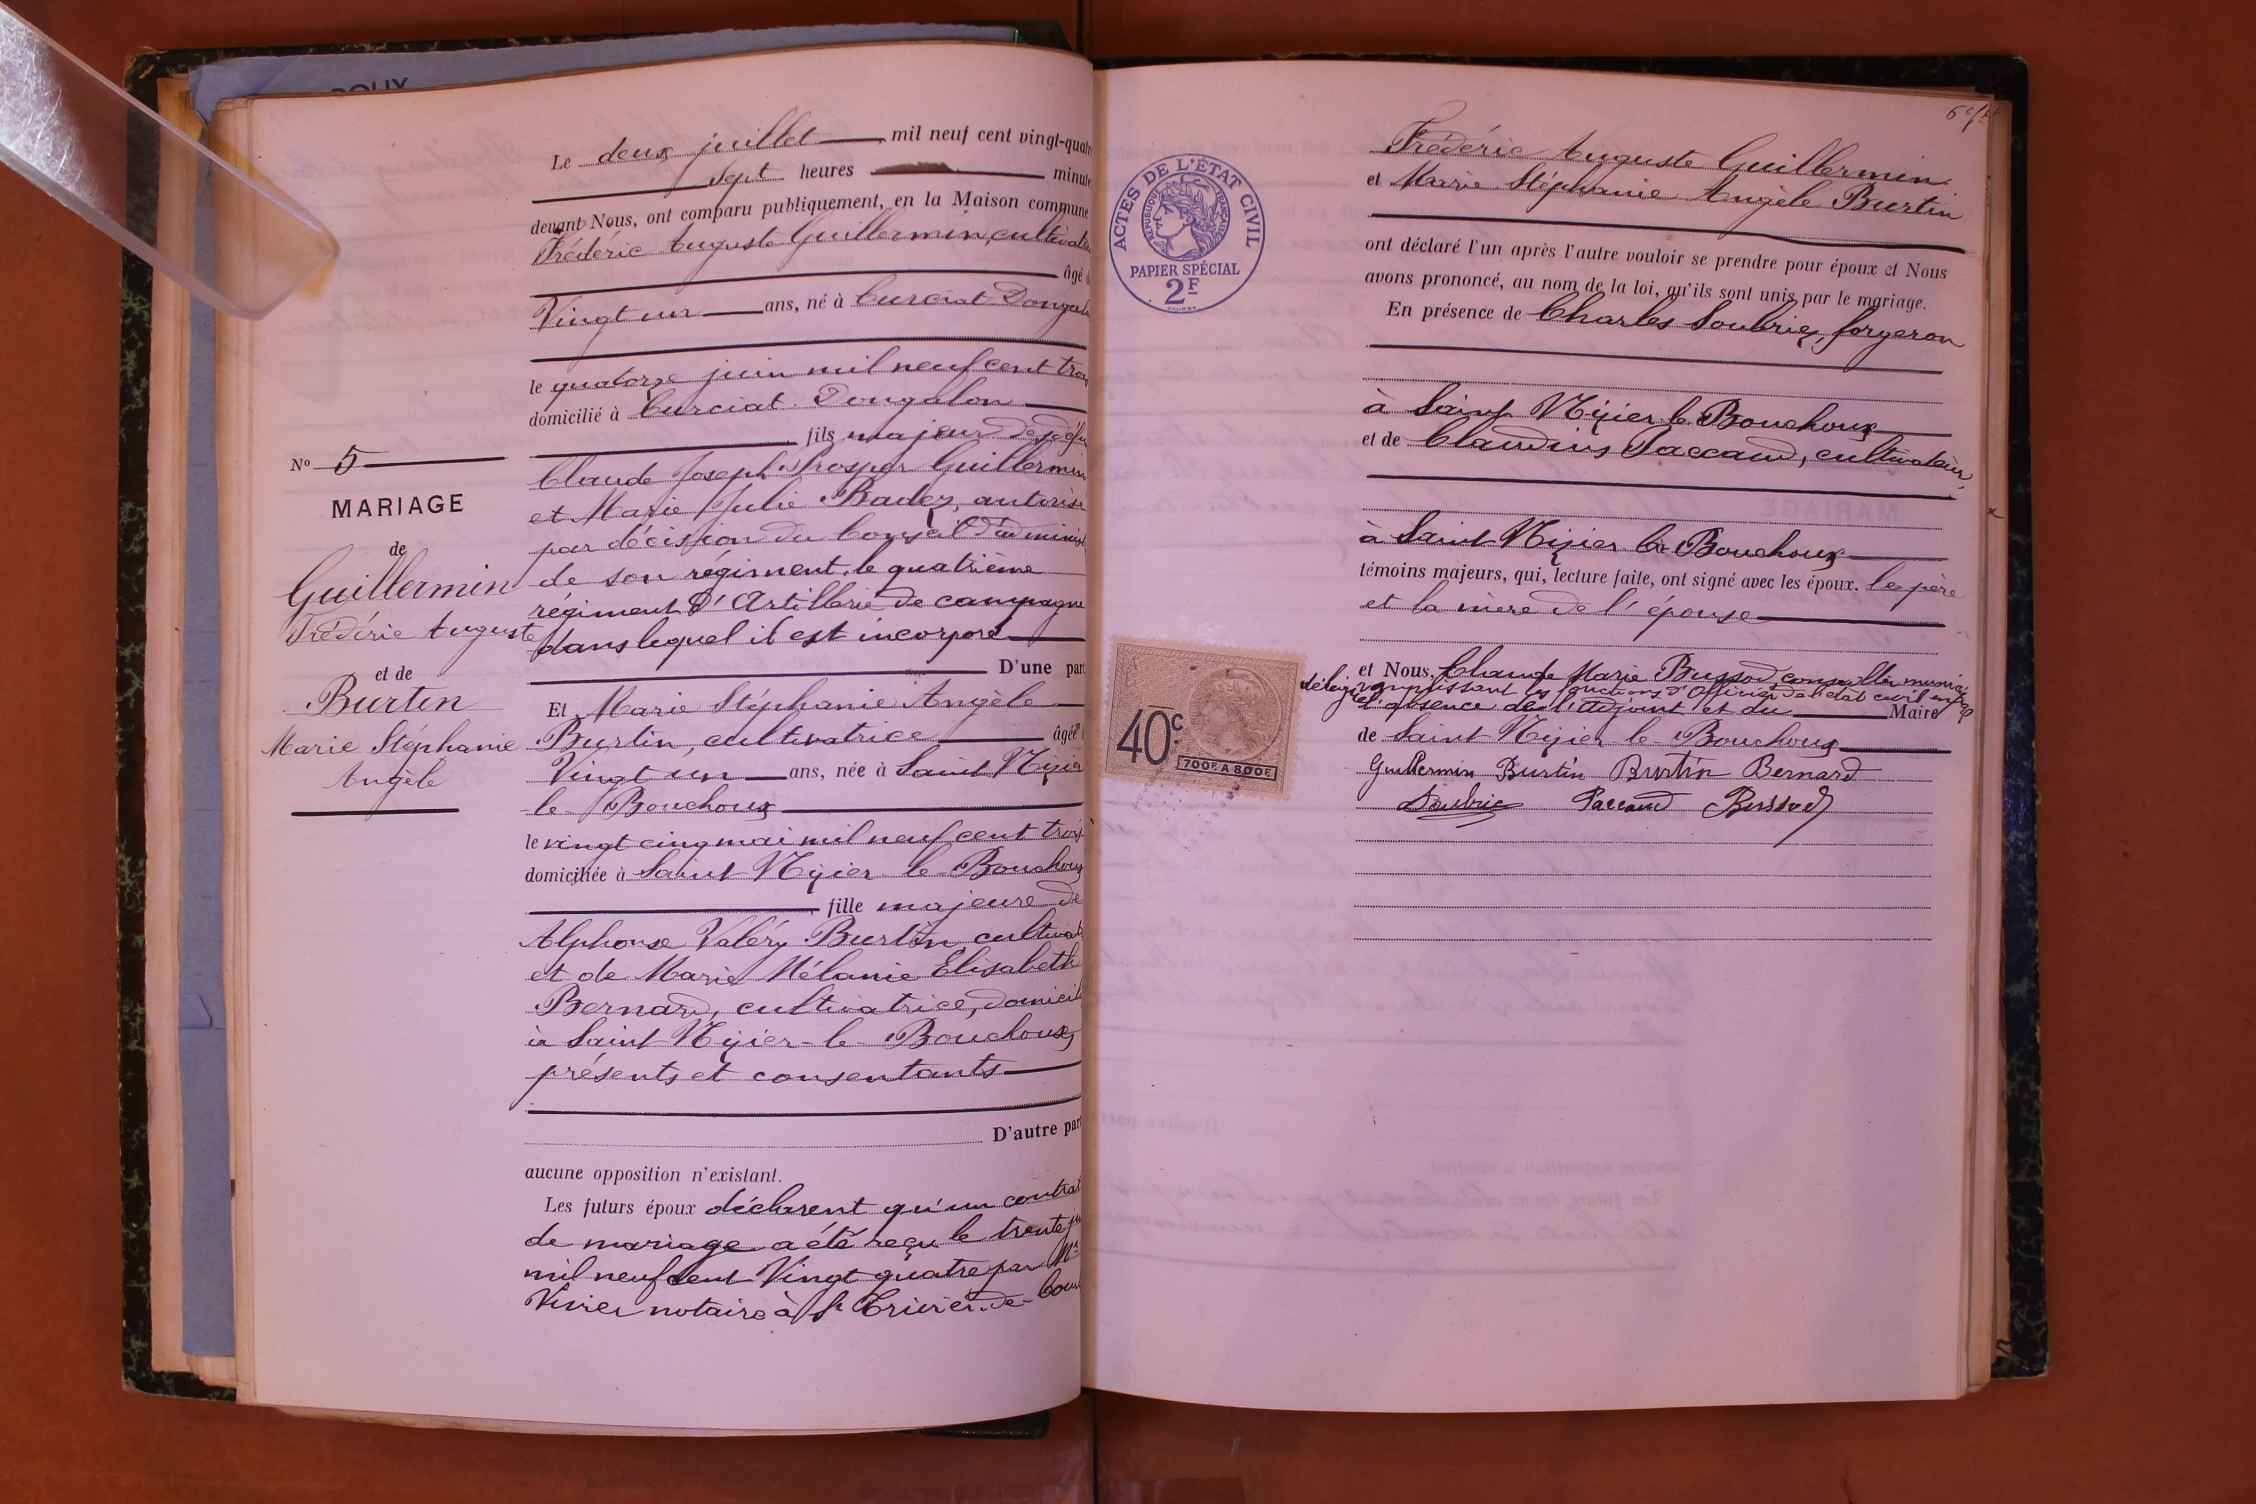 DOUX
N° 5
MARIAGE
de
Guillermin
Frédéric Auguste
et de
Burtin
Marie Stéphanie
Angèle
Le deux juillet mil neuf cent vingt-quatr
sept heures minute
devant Nous, ont comparu publiquement, en la Maison commune
Frédéric Auguste Guillermin, cultivate
âgé
Vingt un ans, né à Curciat Dongalo
le quatorze juin mil neuf cent troi
domicilié à Curciat-Dongalon
fils majeur de
Claude Joseph Prosper Guillermin
et Marie Julie Badez, autorisé
par décision du Conseil d'adminis
de son régiment, le quatrième
régiment d'Artillerie de campagne
dans lequel il est incorporé
D'une part
Et Marie Stéphanie Angèle
Burtin, cultivatrice âgée
Vingt un ans, née à Saint Nizier
le Bouchoux
le vingt cinq mai mil neuf cent trois
domiciliée à Saint Nizier le Bouchoux
fille majeure de
Alphonse Valéry Burtin, cultivat
et de Marie Mélanie Elisabeth
Bernard, cultivatrice, domicili
à Saint Nizier-le-Bouchoux,
présents et consentants
D'autre part
aucune opposition n'existant.
Les futurs époux déclarent qu'un contrat
de mariage a été reçu le trente
mil neuf cent Vingt quatre par Me
Vivier notaire à St Trivier-de-Cour
ACTES DE L'ÉTAT CIVIL
RÉPUBLIQUE FRANÇAISE
PAPIER SPÉCIAL
2F
40c
700F A 800F
Frédéric Auguste Guillermin
et Marie Stéphanie Angèle Burtin
ont déclaré l'un après l'autre vouloir se prendre pour époux et Nous
avons prononcé, au nom de la loi, qu'ils sont unis par le mariage.
En présence de Charles Soubrie, forgeron
à Saint Nizier le Bouchoux
et de Claudius Paccaud, cultivateur,
à Saint Nizier le Bouchoux
témoins majeurs, qui, lecture faite, ont signé avec les époux. le père
et la mère de l'épouse
et Nous, Claude Marie Bussod, conseiller munici
remplissant les fonctions d'Officier de l'état civil en
l'absence de l'Adjoint et du Maire
de Saint Nizier le Bouchoux
Guillermin Burtin Burtin Bernard
Soubrie Paccaud Bussod